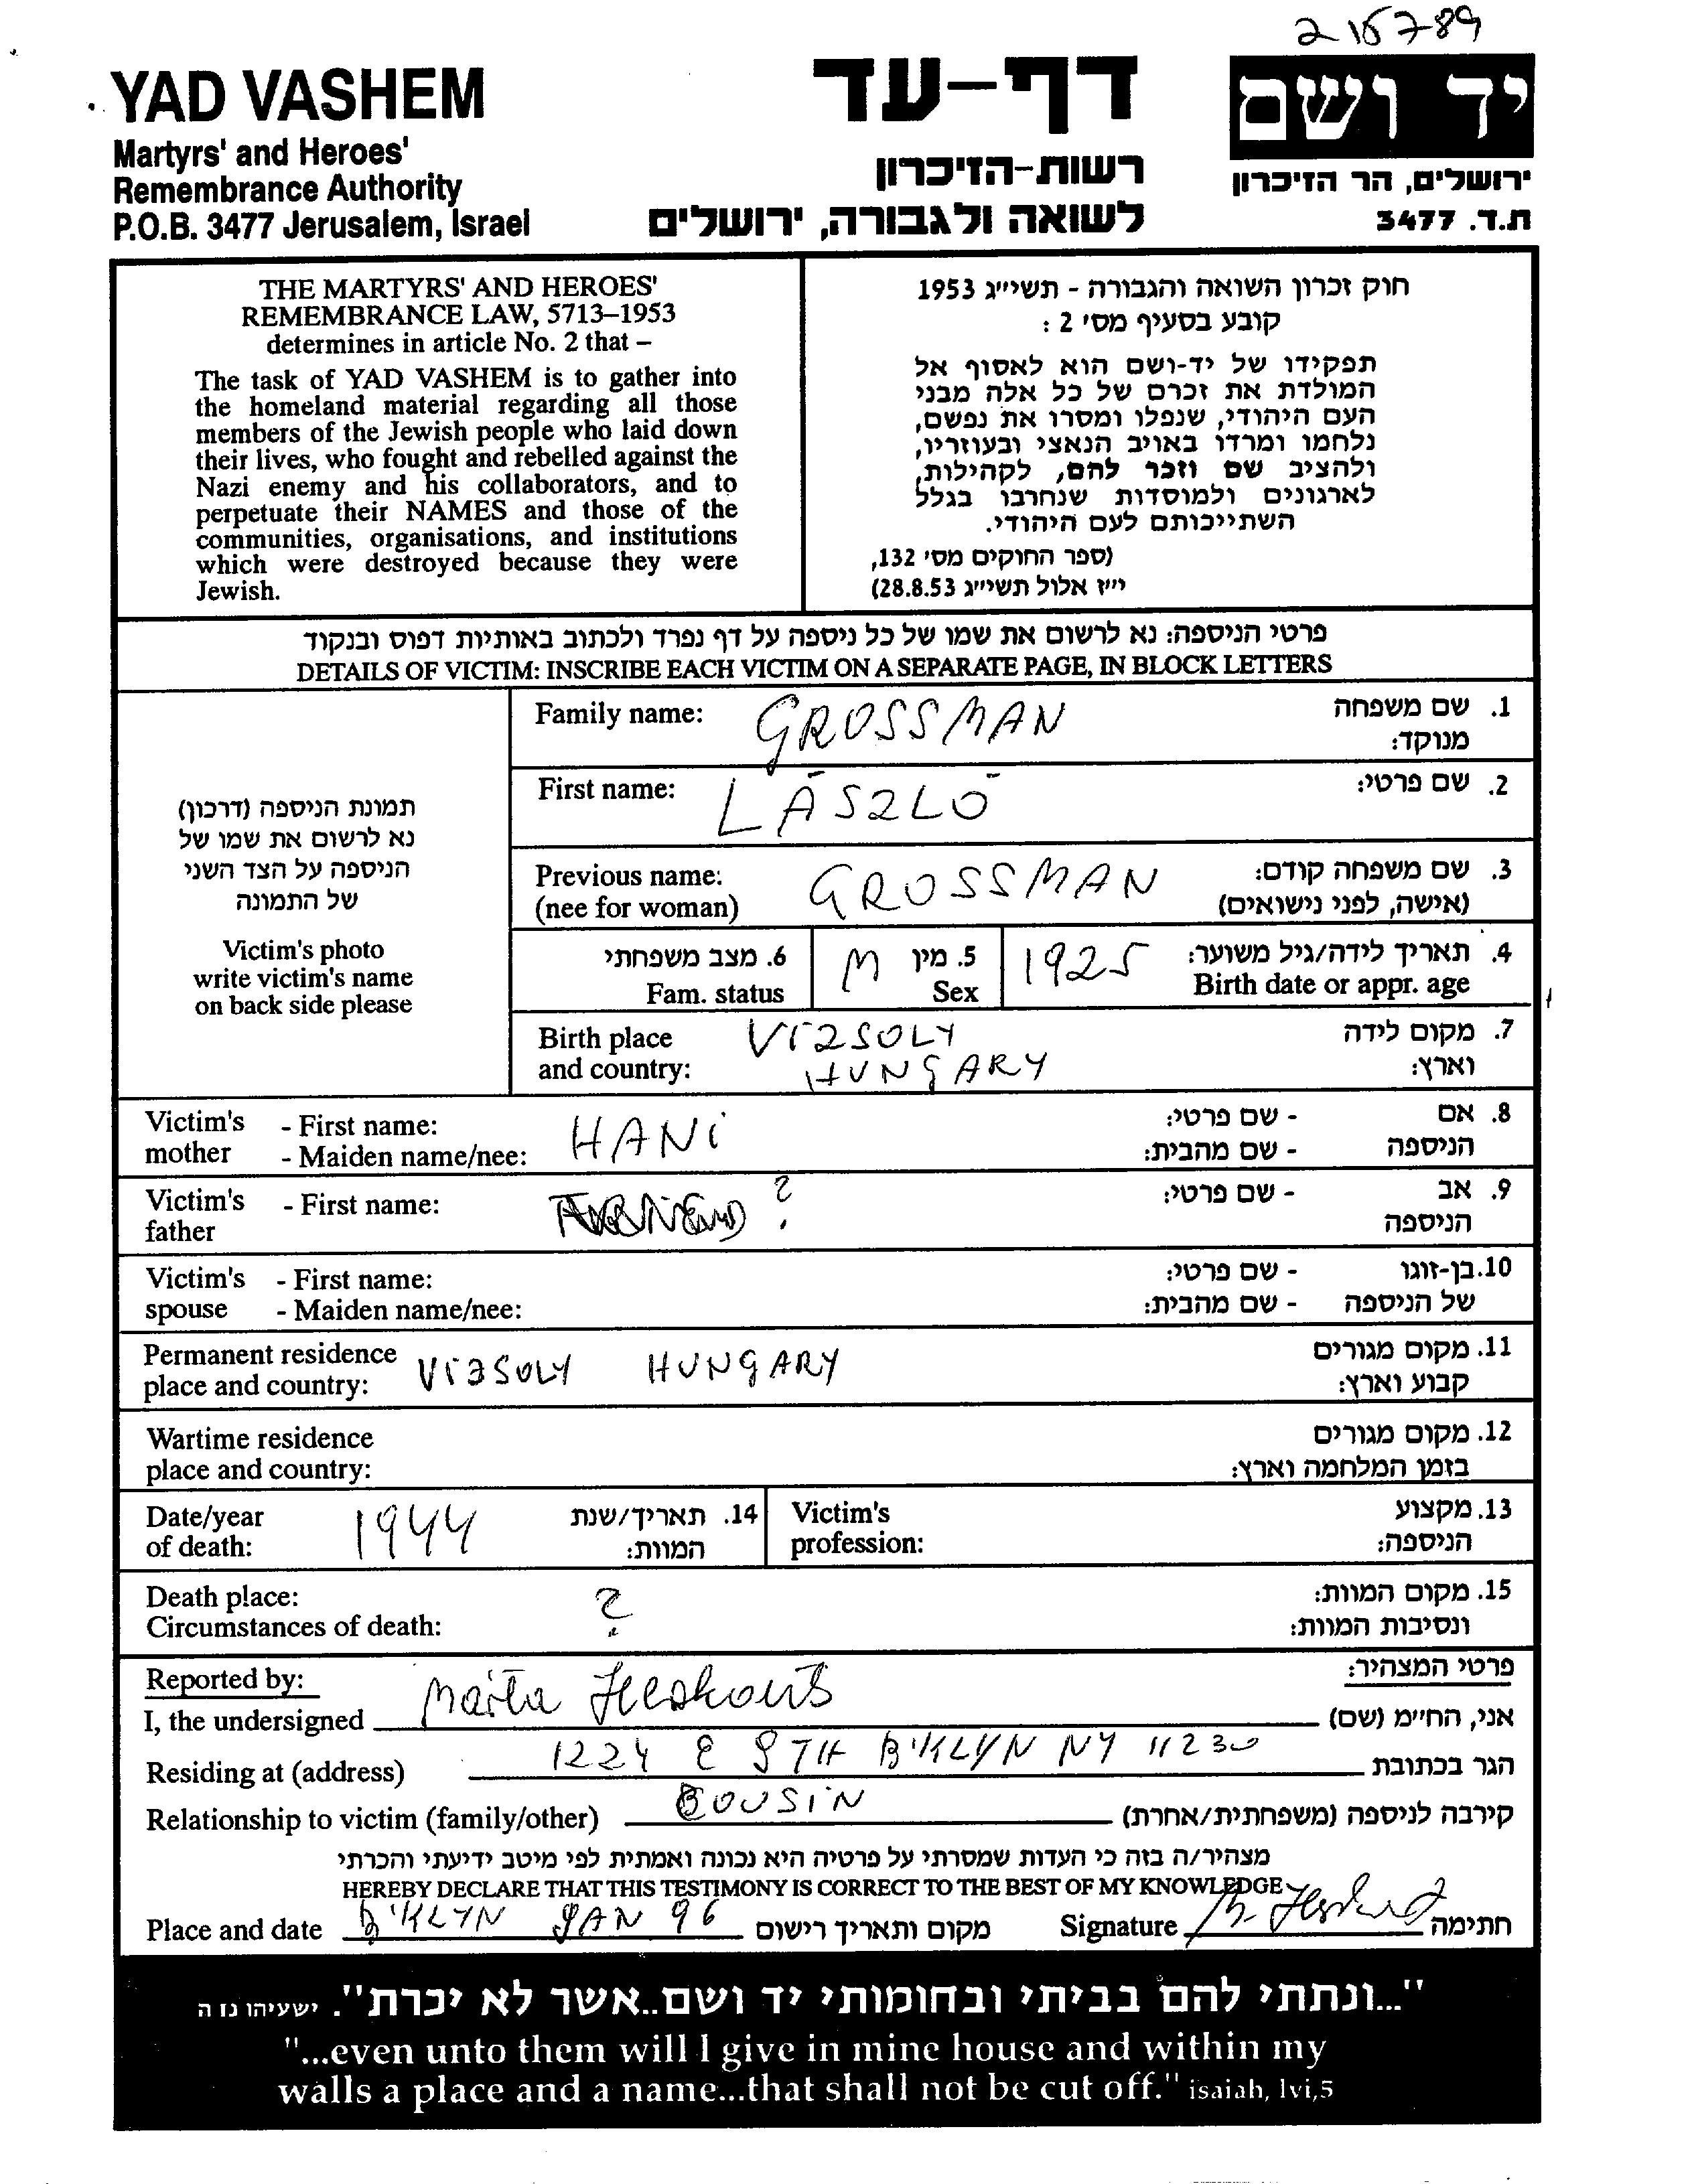 215789
YAD VASHEM
Martyrs' and Heroes'
Remembrance Authority
P.O.B. 3477 Jerusalem, Israel
דף-עד
רשות-הזיכרון
לשואה ולגבורה, ירושלים
יד ושם
ירושלים, הר הזיכרון
ת.ד. 3477
THE MARTYRS' AND HEROES'
REMEMBRANCE LAW, 5713–1953
determines in article No. 2 that –
The task of YAD VASHEM is to gather into
the homeland material regarding all those
members of the Jewish people who laid down
their lives, who fought and rebelled against the
Nazi enemy and his collaborators, and to
perpetuate their NAMES and those of the
communities, organisations, and institutions
which were destroyed because they were
Jewish.
חוק זכרון השואה והגבורה - תשי״ג 1953
קובע בסעיף מס׳ 2 :
תפקידו של יד-ושם הוא לאסוף אל
המולדת את זכרם של כל אלה מבני
העם היהודי, שנפלו ומסרו את נפשם,
נלחמו ומרדו באויב הנאצי ובעוזריו,
ולהציב שם וזכר להם, לקהילות,
לארגונים ולמוסדות שנחרבו בגלל
השתייכותם לעם היהודי.
(ספר החוקים מס׳ 132,
י״ז אלול תשי״ג 28.8.53)
פרטי הניספה: נא לרשום את שמו של כל ניספה על דף נפרד ולכתוב באותיות דפוס ובנקוד
DETAILS OF VICTIM: INSCRIBE EACH VICTIM ON A SEPARATE PAGE, IN BLOCK LETTERS
תמונת הניספה (דרכון)
נא לרשום את שמו של
הניספה על הצד השני
של התמונה
Victim's photo
write victim's name
on back side please
Family name: GROSSMAN 1. שם משפחה
מנוקד:
First name: LÁSZLÓ 2. שם פרטי:
Previous name: GROSSMAN 3. שם משפחה קודם:
(nee for woman) (אישה, לפני נישואים)
6. מצב משפחתי 5. מין M 1925 4. תאריך לידה/גיל משוער:
Fam. status Sex Birth date or appr. age
Birth place VIZSOLY 7. מקום לידה
and country: HUNGARY וארץ:
Victim's - First name: HANI - שם פרטי: 8. אם
mother - Maiden name/nee: - שם מהבית: הניספה
Victim's - First name: ? - שם פרטי: 9. אב
father הניספה
Victim's - First name: - שם פרטי: 10. בן-זוגו
spouse - Maiden name/nee: - שם מהבית: של הניספה
Permanent residence VIZSOLY HUNGARY 11. מקום מגורים
place and country: קבוע וארץ:
Wartime residence 12. מקום מגורים
place and country: בזמן המלחמה וארץ:
Date/year 1944 14. תאריך/שנת Victim's 13. מקצוע
of death: המוות: profession: הניספה:
Death place: ? 15. מקום המוות:
Circumstances of death: ונסיבות המוות:
Reported by: פרטי המצהיר:
I, the undersigned Marta אני, החי״מ (שם)
Residing at (address) 1224 E 9TH B'KLYN NY 11230 הגר בכתובת
Relationship to victim (family/other) COUSIN קירבה לניספה (משפחתית/אחרת)
מצהיר/ה בזה כי העדות שמסרתי על פרטיה היא נכונה ואמתית לפי מיטב ידיעתי והכרתי
HEREBY DECLARE THAT THIS TESTIMONY IS CORRECT TO THE BEST OF MY KNOWLEDGE
Place and date B'KLYN JAN 96 מקום ותאריך רישום Signature חתימה
"...ונתתי להם בביתי ובחומותי יד ושם..אשר לא יכרת". ישעיהו נז ה
"...even unto them will I give in mine house and within my
walls a place and a name...that shall not be cut off." isaiah, lvi,5